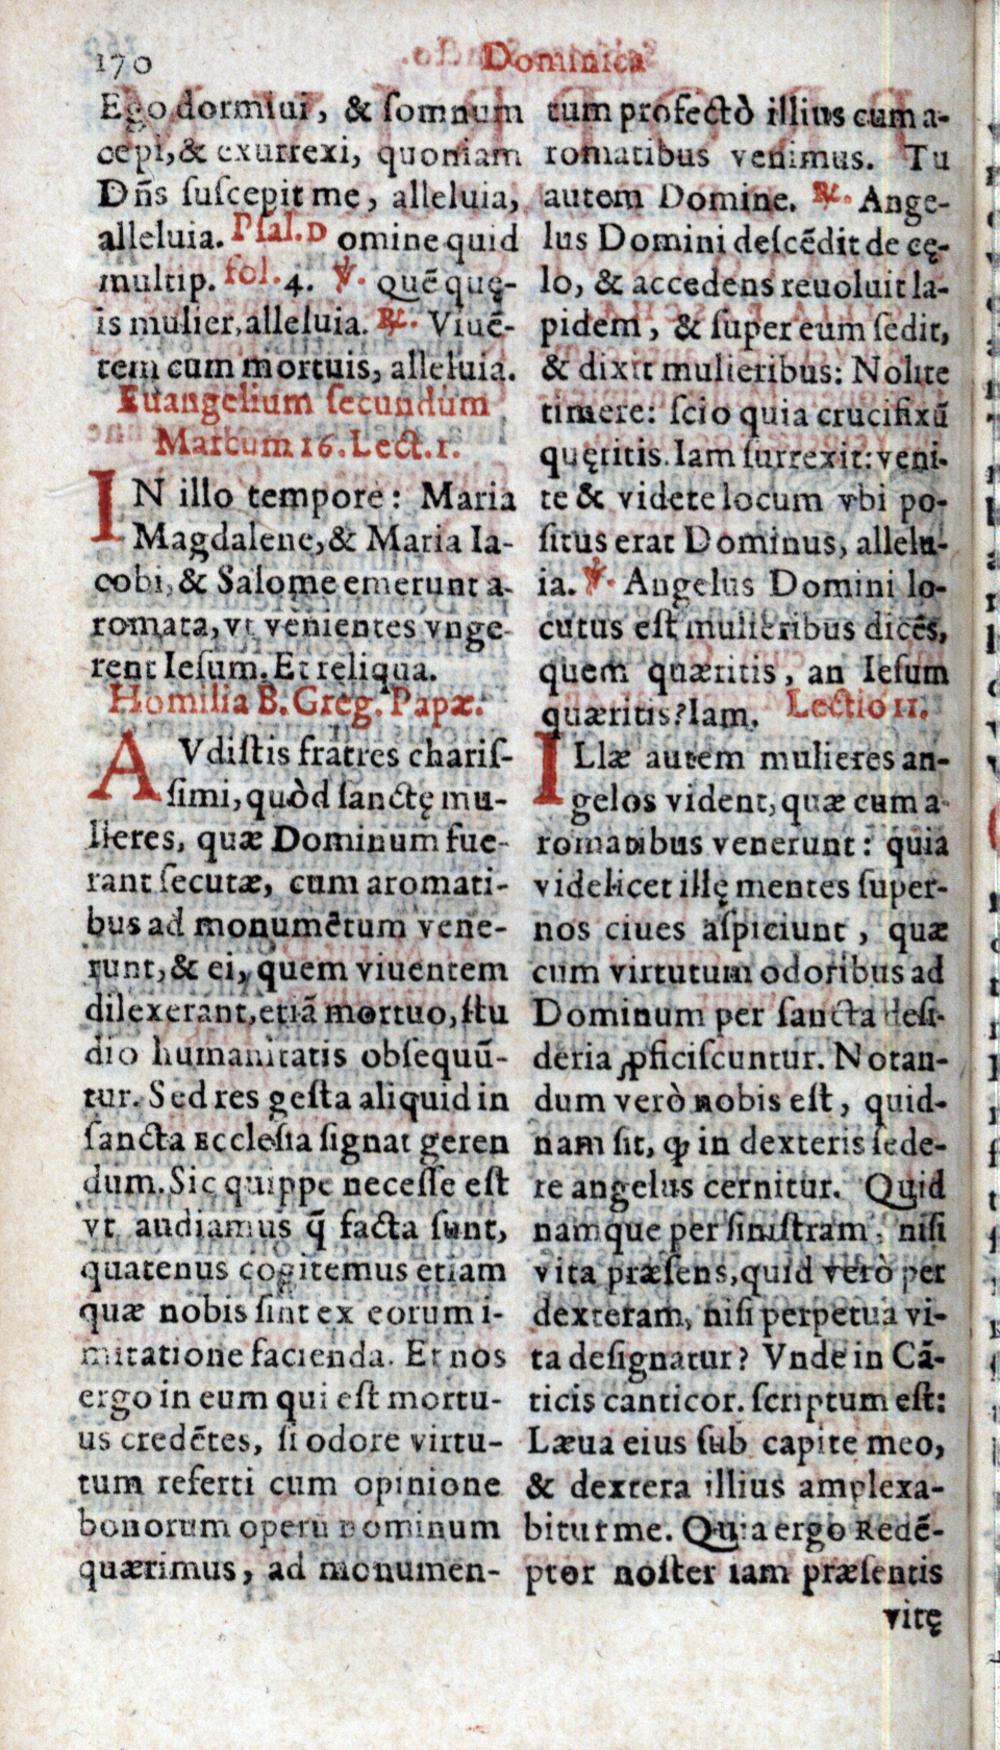 170
Dominica
Ego dormiui, & ſomnum
cepi, & exurrexi, quoniam
Dn̄s ſuſcepit me, alleluia,
alleluia. Pſal. Domine quid
multip. fol. 4. ℣. Quē quę-
is mulier, alleluia. ℟. Viuē-
tem cum mortuis, alleluia.
Euangelium ſecundum
Marcum 16. Lect. 1.
IN illo tempore: Maria
Magdalene, & Maria Ia-
cobi, & Salome emerunt a-
romata, vt venientes vnge
rent Ieſum. Et reliqua.
Homilia B. Greg. Papæ.
AVdiſtis fratres chariſ-
ſimi, quòd ſanctę mu-
lieres, quæ Dominum fue-
rant ſecutæ, cum aromati-
bus ad monumētum vene-
runt, & ei, quem viuentem
dilexerant, etiā mortuo, ſtu
dio humanitatis obſequū-
tur. Sed res geſta aliquid in
ſancta Eccleſia ſignat geren
dum. Sic quippe neceſſe eſt
vt audiamus q̄ facta ſunt,
quatenus cogitemus etiam
quæ nobis ſint ex eorum i-
mitatione facienda. Et nos
ergo in eum qui eſt mortu-
us credētes, ſi odore virtu-
tum referti cum opinione
bonorum operū Dominum
quærimus, ad monumen-
tum profectò illius cum a-
romatibus venimus. Tu
autem Domine. ℟. Ange-
lus Domini deſcēdit de cę-
lo, & accedens reuoluit la-
pidem, & ſuper eum ſedit,
& dixit mulieribus: Nolite
timere: ſcio quia crucifixū
quęritis. Iam ſurrexit: veni-
te & videte locum vbi po-
ſitus erat Dominus, allelu-
ia. ℣. Angelus Domini lo-
cutus eſt mulieribus dicēs,
quem quæritis, an Ieſum
quæritis? Iam. Lectio II.
ILlæ autem mulieres an-
gelos vident, quæ cum a
romatibus venerunt: quia
videlicet illę mentes ſuper-
nos ciues aſpiciunt, quæ
cum virtutum odoribus ad
Dominum per ſancta deſi-
deria ꝓficiſcuntur. Notan-
dum verò nobis eſt, quid-
nam ſit, ꝙ in dexteris ſede-
re angelus cernitur. Quid
namque per ſiniſtram, niſi
vita præſens, quid verò per
dexteram, niſi perpetua vi-
ta deſignatur? Vnde in Cā-
ticis canticor. ſcriptum eſt:
Læua eius ſub capite meo,
& dextera illius amplexa-
bitur me. Quia ergo Redē-
ptor noſter iam præſentis
vitę